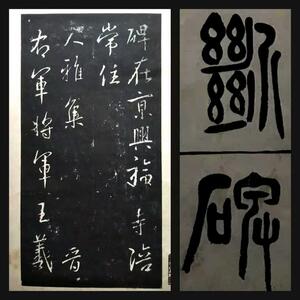 碑在京興福寺陪
常住
大雅集 晋
右軍將軍王羲
斷
碑